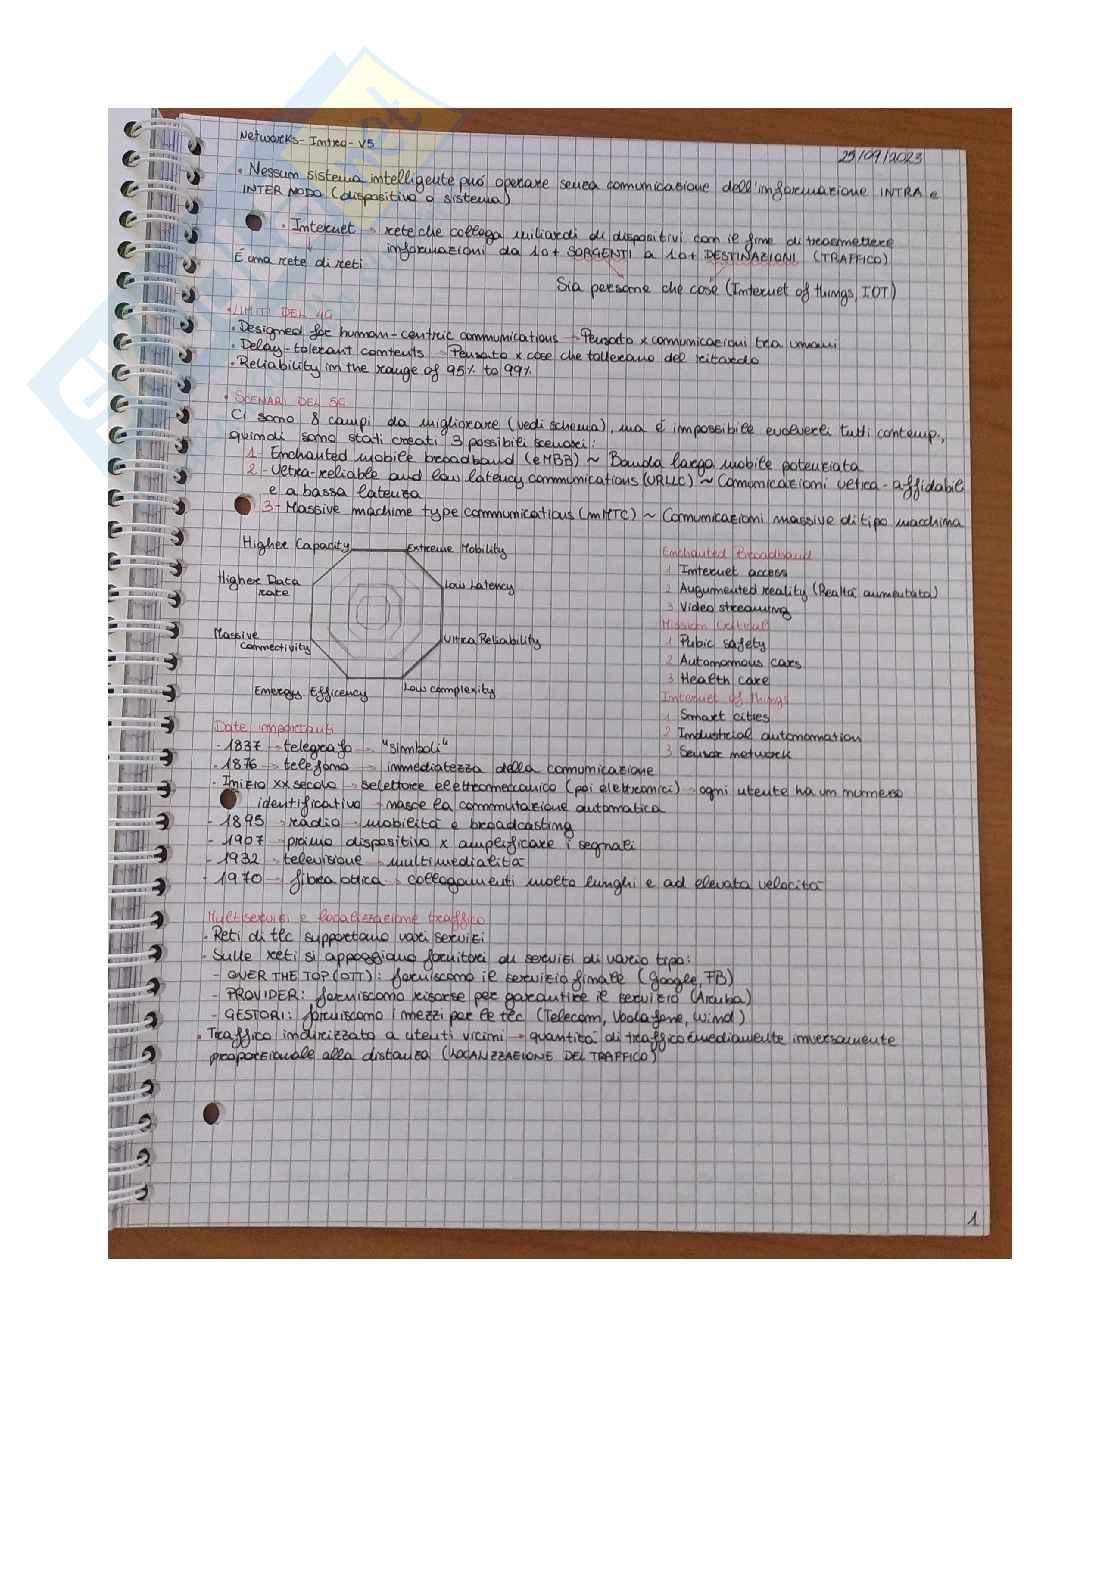 Networks-Intro-V5
25/09/2023
• Nessun sistema intelligente può operare senza comunicazione dell'informazione INTRA e
INTER NODO (dispositivo o sistema)
• Internet → rete che collega miliardi di dispositivi con il fine di trasmettere
informazioni da 1 o + SORGENTI a 1 o + DESTINAZIONI (TRAFFICO)
È una rete di reti
Sia persone che cose (Internet of things, IOT)
• LIMITI DEL 4G
• Designed for human-centric communications → Pensato x comunicazioni tra umani
• Delay-tolerant contents → Pensato x cose che tollerano del ritardo
• Reliability in the range of 95% to 99%
• SCENARI DEL 5G
Ci sono 8 campi da migliorare (vedi schema), ma è impossibile evolverli tutti contemp.,
quindi sono stati creati 3 possibili scenari:
1- Enchanted mobile broadband (eMBB) ~ Banda larga mobile potenziata
2- Ultra-reliable and low latency communications (URLLC) ~ Comunicazioni ultra-affidabili
e a bassa latenza
3- Massive machine type communications (mMTC) ~ Comunicazioni massive di tipo macchina
Higher Capacity
Extreme Mobility
Higher Data
rate
Low Latency
Massive
connectivity
Ultra Reliability
Energy Efficency
Low complexity
Enchanted Broadband
1 Internet access
2 Augumented reality (Realtà aumentata)
3 Video streaming
Mission Critical
1 Pubic safety
2 Autonomous cars
3 Health care
Internet of things
1 Smart cities
2 Industrial automomation
3 Sensor network
Date importanti
- 1837 → telegrafo → "simboli"
- 1876 → telefono → immediatezza della comunicazione
- Inizio XX secolo → selettore elettromeccanico (poi elettronici) → ogni utente ha un numero
identificativo → nasce la commutazione automatica
- 1895 → radio → mobilità e broadcasting
- 1907 → primo dispositivo x amplificare i segnali
- 1932 → televisione → multimedialità
- 1970 → fibra ottica → collegamenti molto lunghi e ad elevata velocità
Multiservizi e localizzazione traffico
• Reti di tlc supportano vari servizi
• Sulle reti si appoggiano fornitori di servizi di vario tipo:
- OVER THE TOP (OTT): forniscono il servizio finale (Google, FB)
- PROVIDER: forniscono risorse per garantire il servizio (Aruba)
- GESTORI: forniscono i mezzi per le tlc (Telecom, Vodafone, Wind)
• Traffico indirizzato a utenti vicini → quantità di traffico è mediamente inversamente
proporzionale alla distanza (LOCALIZZAZIONE DEL TRAFFICO)
1